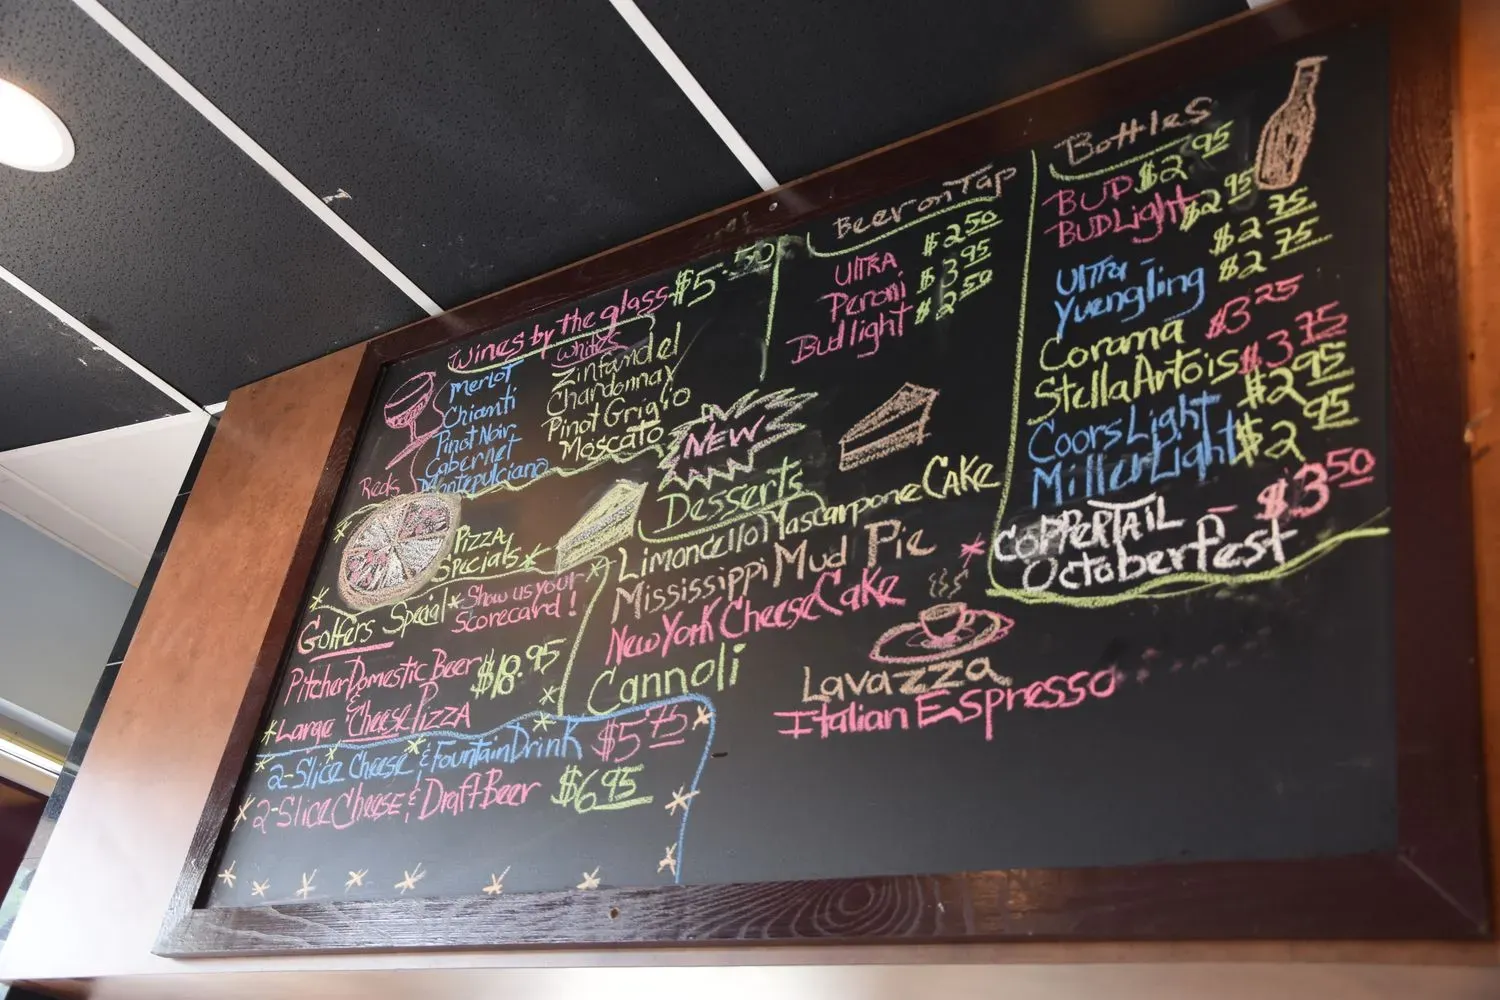 Wines by the glass $5.50
Reds
Merlot
Chianti
Pinot Noir
Cabernet
Montepulciano
Whites
Zinfandel
Chardonnay
Pinot Grigio
Moscato
Beer on Tap
Ultra $2.50
Peroni $3.95
Bud light $2.50
Bottles
BUD $2.95
BUDLight $2.95
Ultra - $2.75
Yuengling $2.75
Corona $3.25
Stella Artois $3.75
Coors Light $2.95
Miller Light $2.95
COPPERTAIL - $3.50
Octoberfest
Pizza
Specials
Golfers Special * Show us your
Scorecard!
Pitcher Domestic Beer $18.95
&
Large Cheese Pizza
2-Slice Cheese & Fountain Drink $5.75
2-Slice Cheese & Draft Beer $6.95
NEW
Desserts
Limoncello Mascarpone Cake
Mississippi Mud Pie
New York Cheese Cake
Cannoli
Lavazza
Italian Espresso